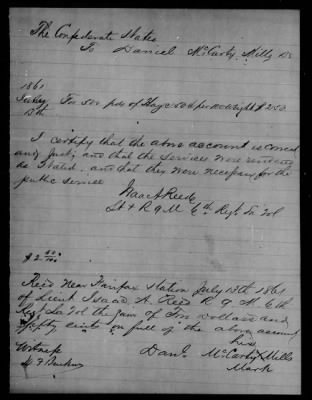 The Confederate States
To Daniel McCarty Mills Dr
1861
July
13th
For 500 lbs of Hay @ 50 c per weight $2.50
I certify that the above account is correct
and just, and that the services were rendered
as stated, and that they were necessary for the
public service
Isaac A Reed
Lt & R Q M 6th Regt La Vol
$2 50/100
Recd near Fairfax Station July 13th 1861
of Lieut Isaac A. Reed R Q M 6th
Regt La Vol the sum of Two Dollars and
fifty cents in full of the above account
his
Danl McCarty X Mills
Mark
Witness